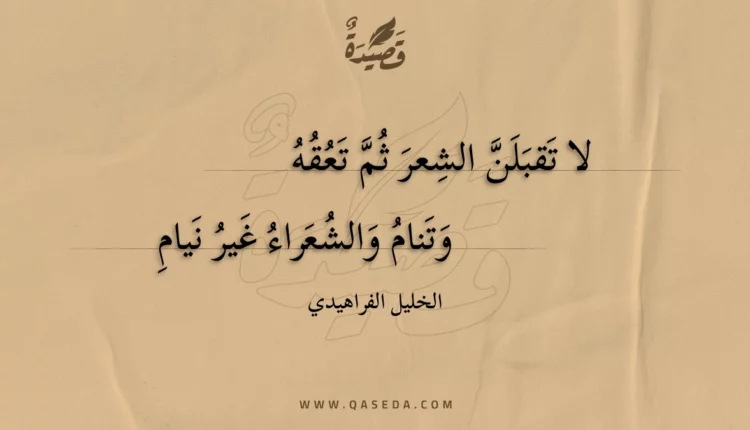 قَصِيدَةٌ
لا تَقبَلَنَّ الشِعرَ ثُمَّ تَعُقُّهُ
وَتَنامُ وَالشُعَراءُ غَيرُ نَيامِ
الخليل الفراهيدي
WWW.QASEDA.COM